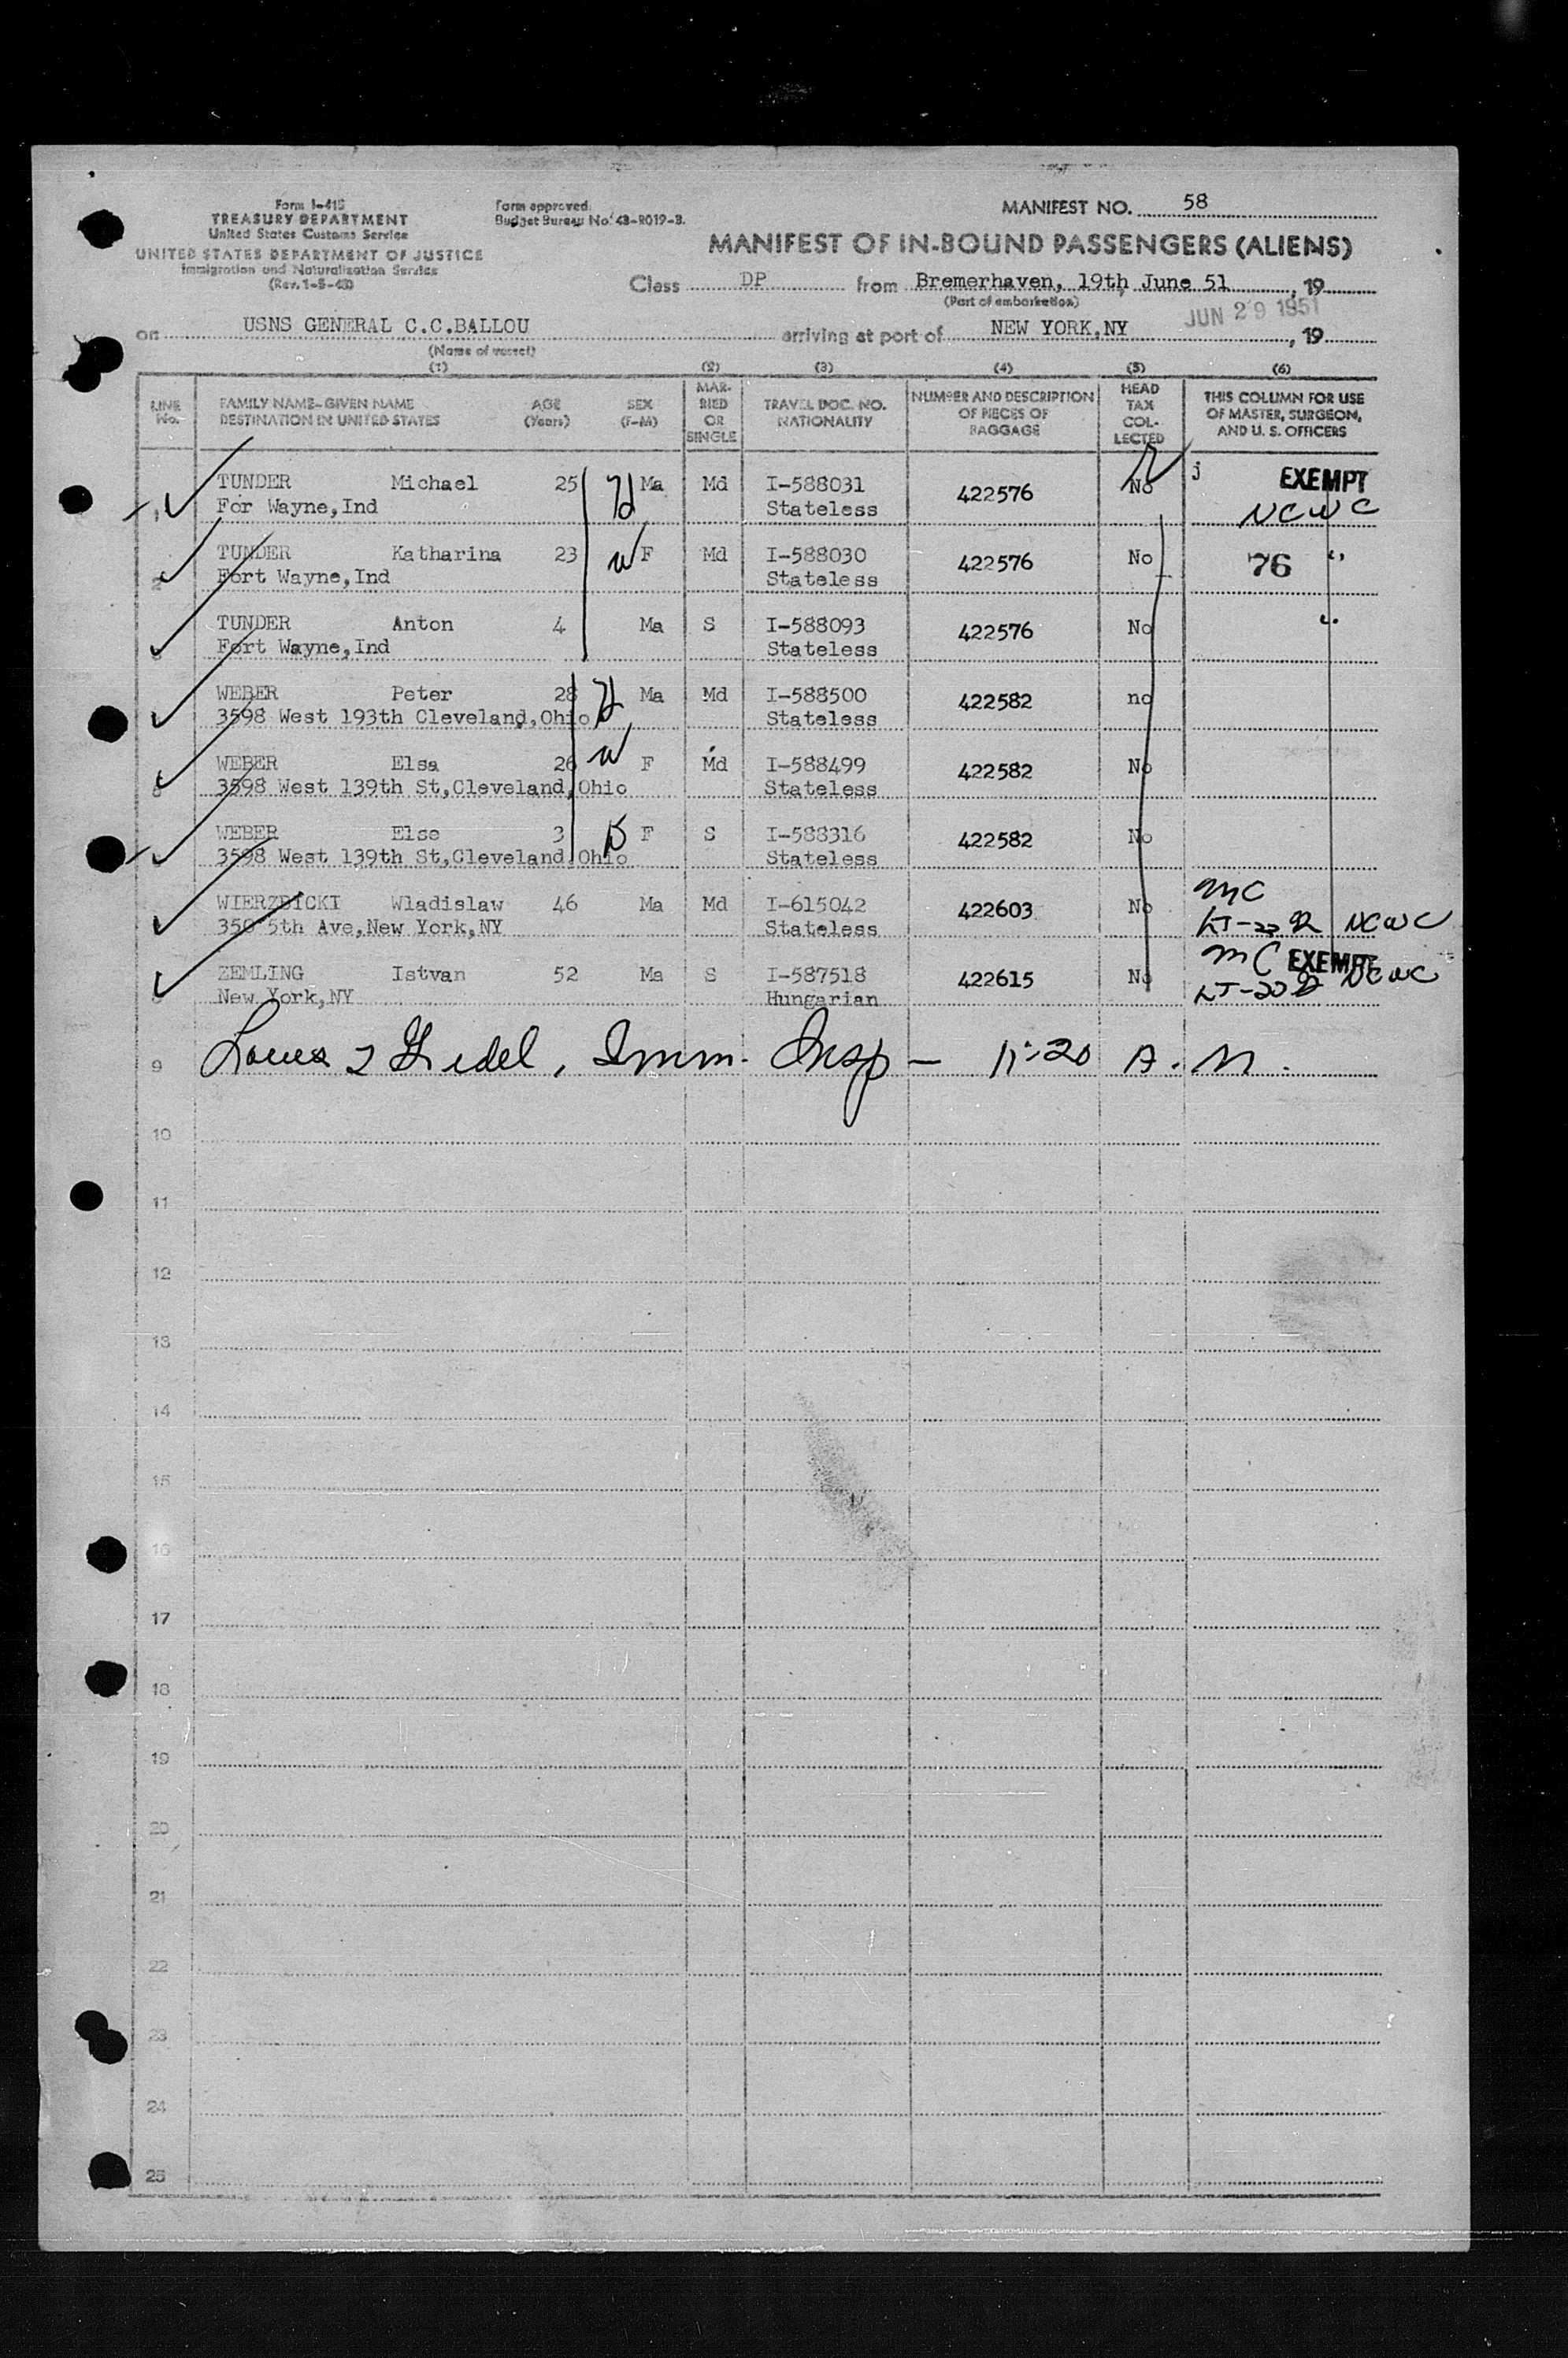 Form I-415
TREASURY DEPARTMENT
United States Customs Service
UNITED STATES DEPARTMENT OF JUSTICE
Immigration and Naturalization Service
(Rev. 1-5-48)
Form approved.
Budget Bureau No. 43-R019-3.
MANIFEST NO. 58
MANIFEST OF IN-BOUND PASSENGERS (ALIENS)
Class DP from Bremerhaven, 19th June 51, 19
(Port of embarkation)
JUN 29 1951
on USNS GENERAL C.C.BALLOU arriving at port of NEW YORK,NY, 19
(Name of vessel)
(1) (2) (3) (4) (5) (6)
LINE No. FAMILY NAME-GIVEN NAME DESTINATION IN UNITED STATES AGE (Years) SEX (F-M) MARRIED OR SINGLE TRAVEL DOC. NO. NATIONALITY NUMBER AND DESCRIPTION OF PIECES OF BAGGAGE HEAD TAX COLLECTED THIS COLUMN FOR USE OF MASTER, SURGEON, AND U. S. OFFICERS
1 TUNDER Michael 25 H Ma Md I-588031 422576 No j EXEMPT
For Wayne,Ind Stateless NCWC
2 TUNDER Katharina 23 W F Md I-588030 422576 No 76 "
Fort Wayne,Ind Stateless
3 TUNDER Anton 4 Ma S I-588093 422576 No "
Fort Wayne,Ind Stateless
WEBER Peter 28 H Ma Md I-588500 422582 no
3598 West 193th Cleveland,Ohio Stateless
WEBER Elsa 26 W F Md I-588499 422582 No
3598 West 139th St,Cleveland,Ohio Stateless
WEBER Else 3 F S I-588316 422582 No
3598 West 139th St,Cleveland,Ohio Stateless
WIERZBICKI Wladislaw 46 Ma Md I-615042 422603 No MC
350 5th Ave,New York,NY Stateless NCWC
8 ZEMLING Istvan 52 Ma S I-587518 422615 No MC EXEMPT
New York,NY Hungarian NCWC
9 Imm. Insp - 11:20 A.M.
10
11
12
13
14
15
16
17
18
19
20
21
22
23
24
25